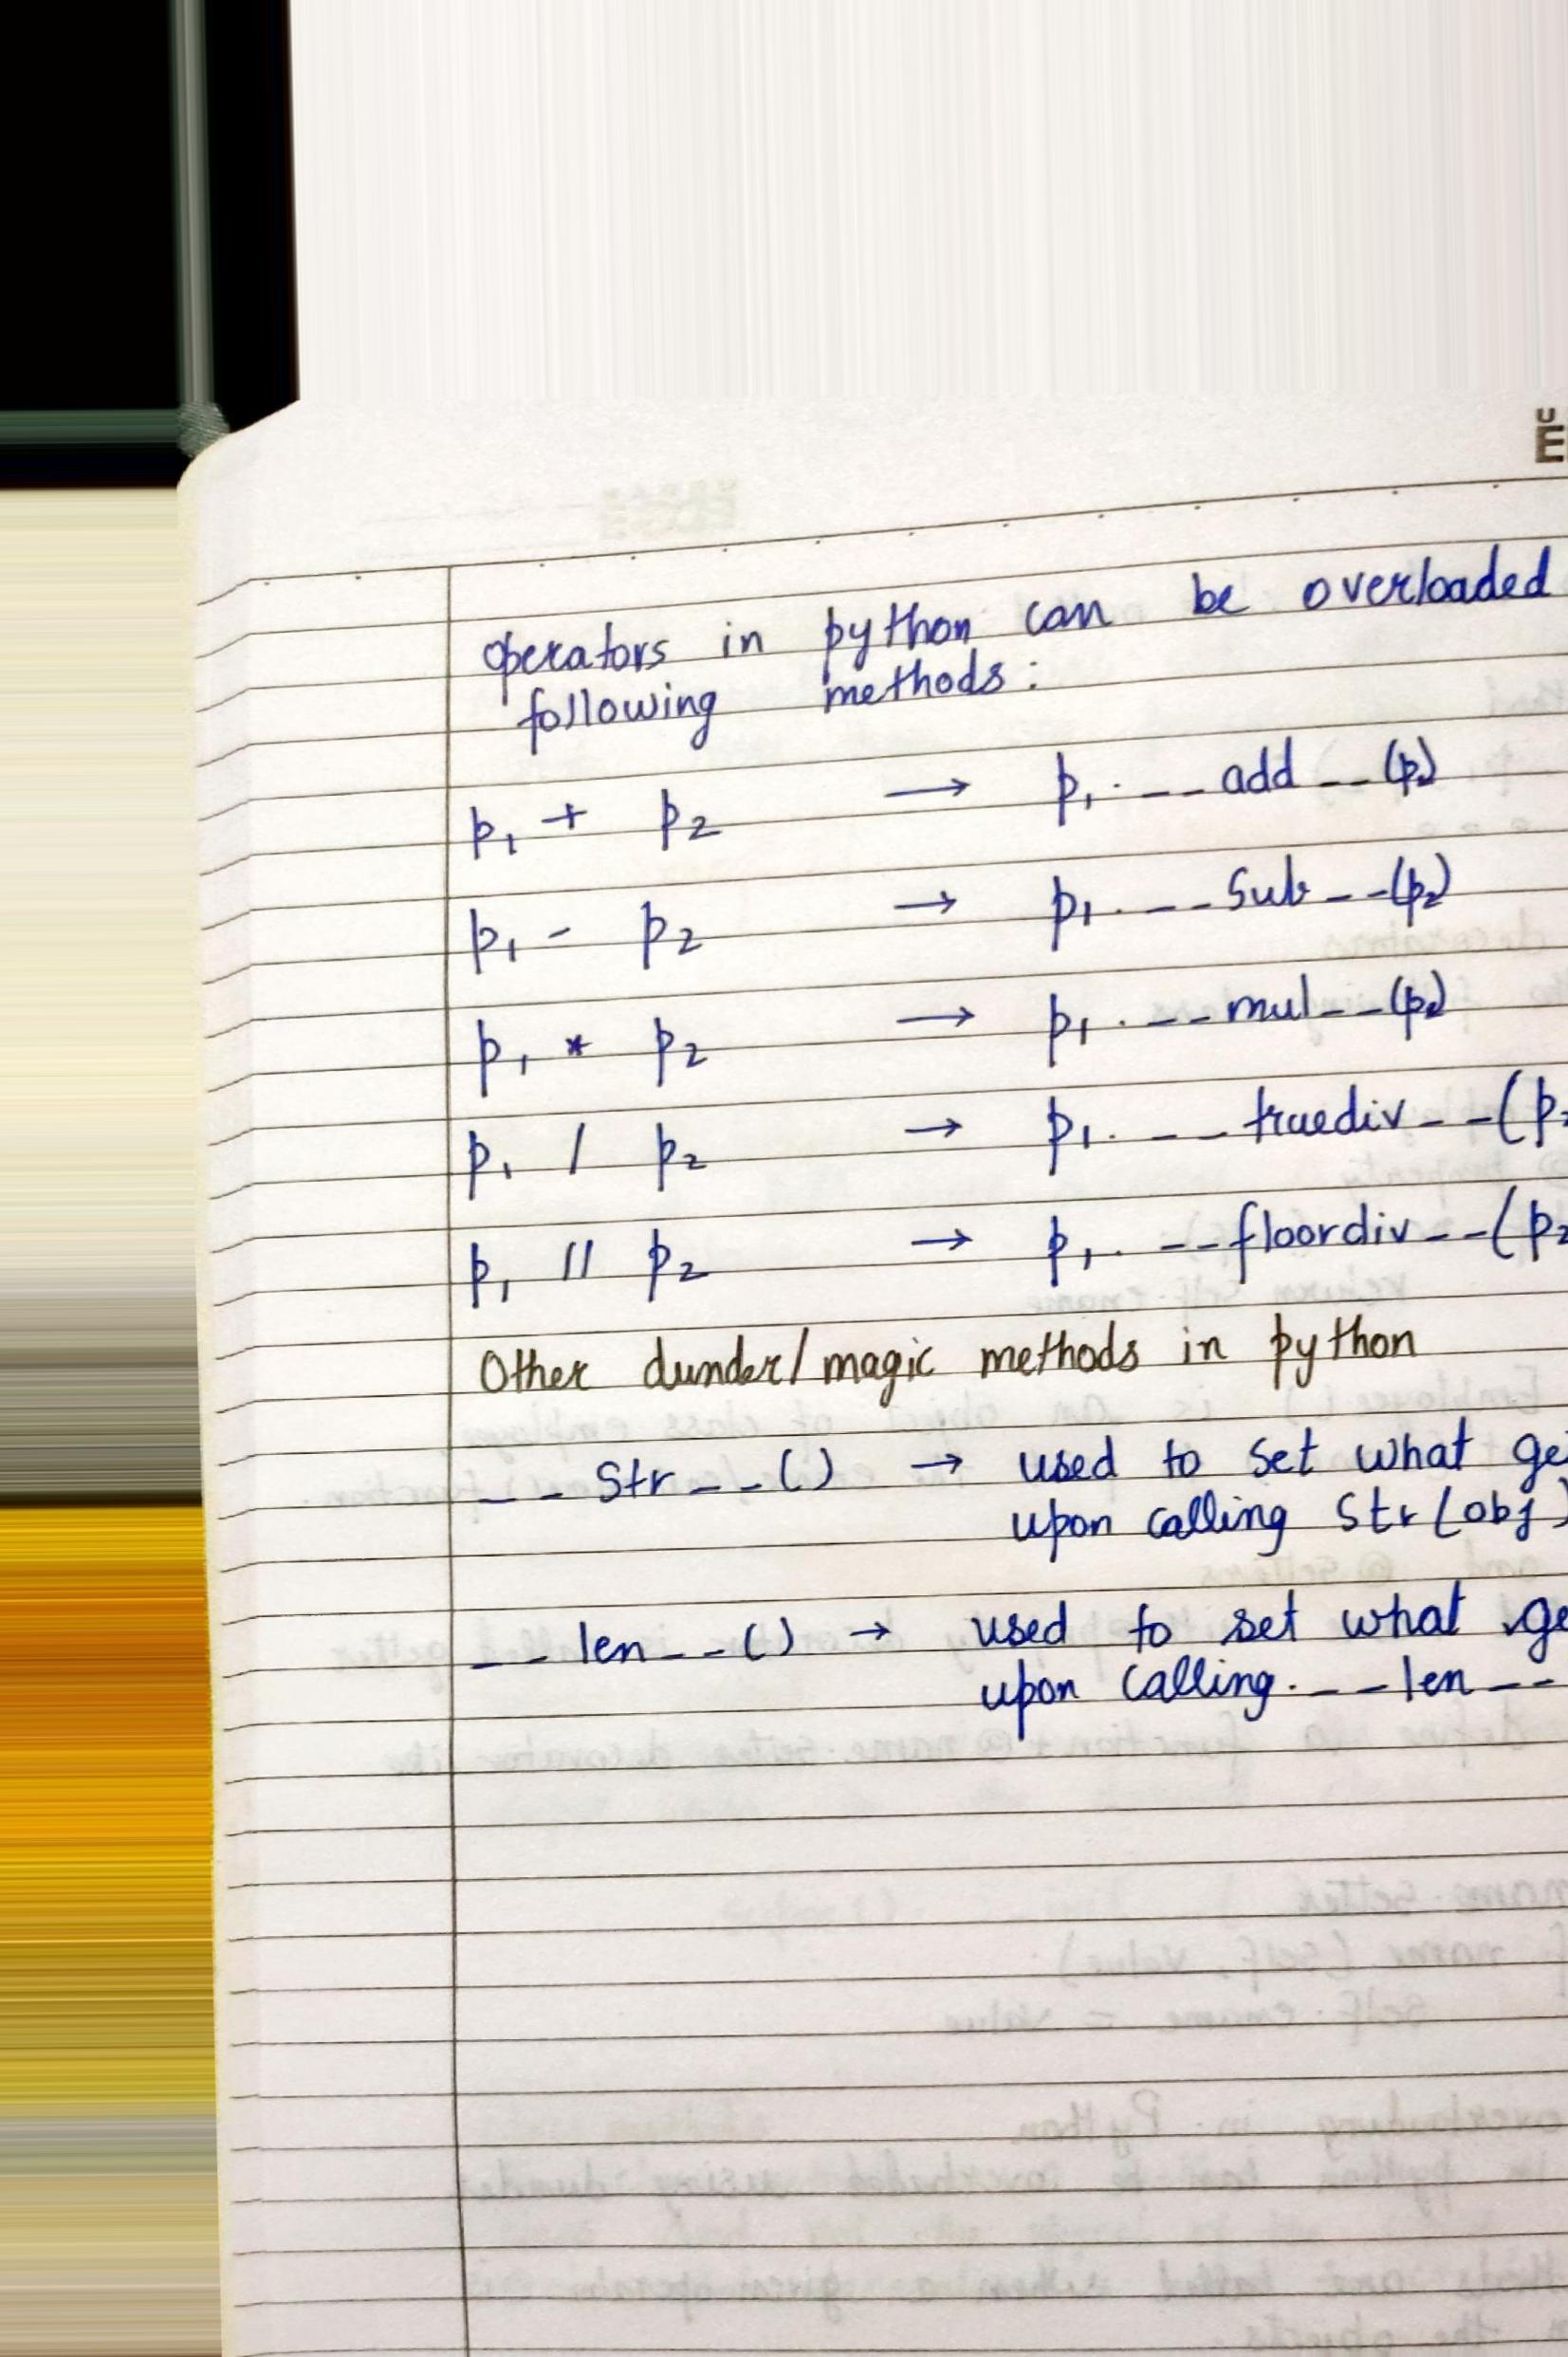 operators in python can be overloaded
following methods:
p1 + p2 → p1.__add__(p2)
p1 - p2 → p1.__sub__(p2)
p1 * p2 → p1.__mul__(p2)
p1 / p2 → p1.__truediv__(p2
p1 // p2 → p1.__floordiv__(p2
Other dunder/magic methods in python
__str__() → used to set what ge
upon calling str(obj)
__len__() → used to set what ge
upon calling.__len__